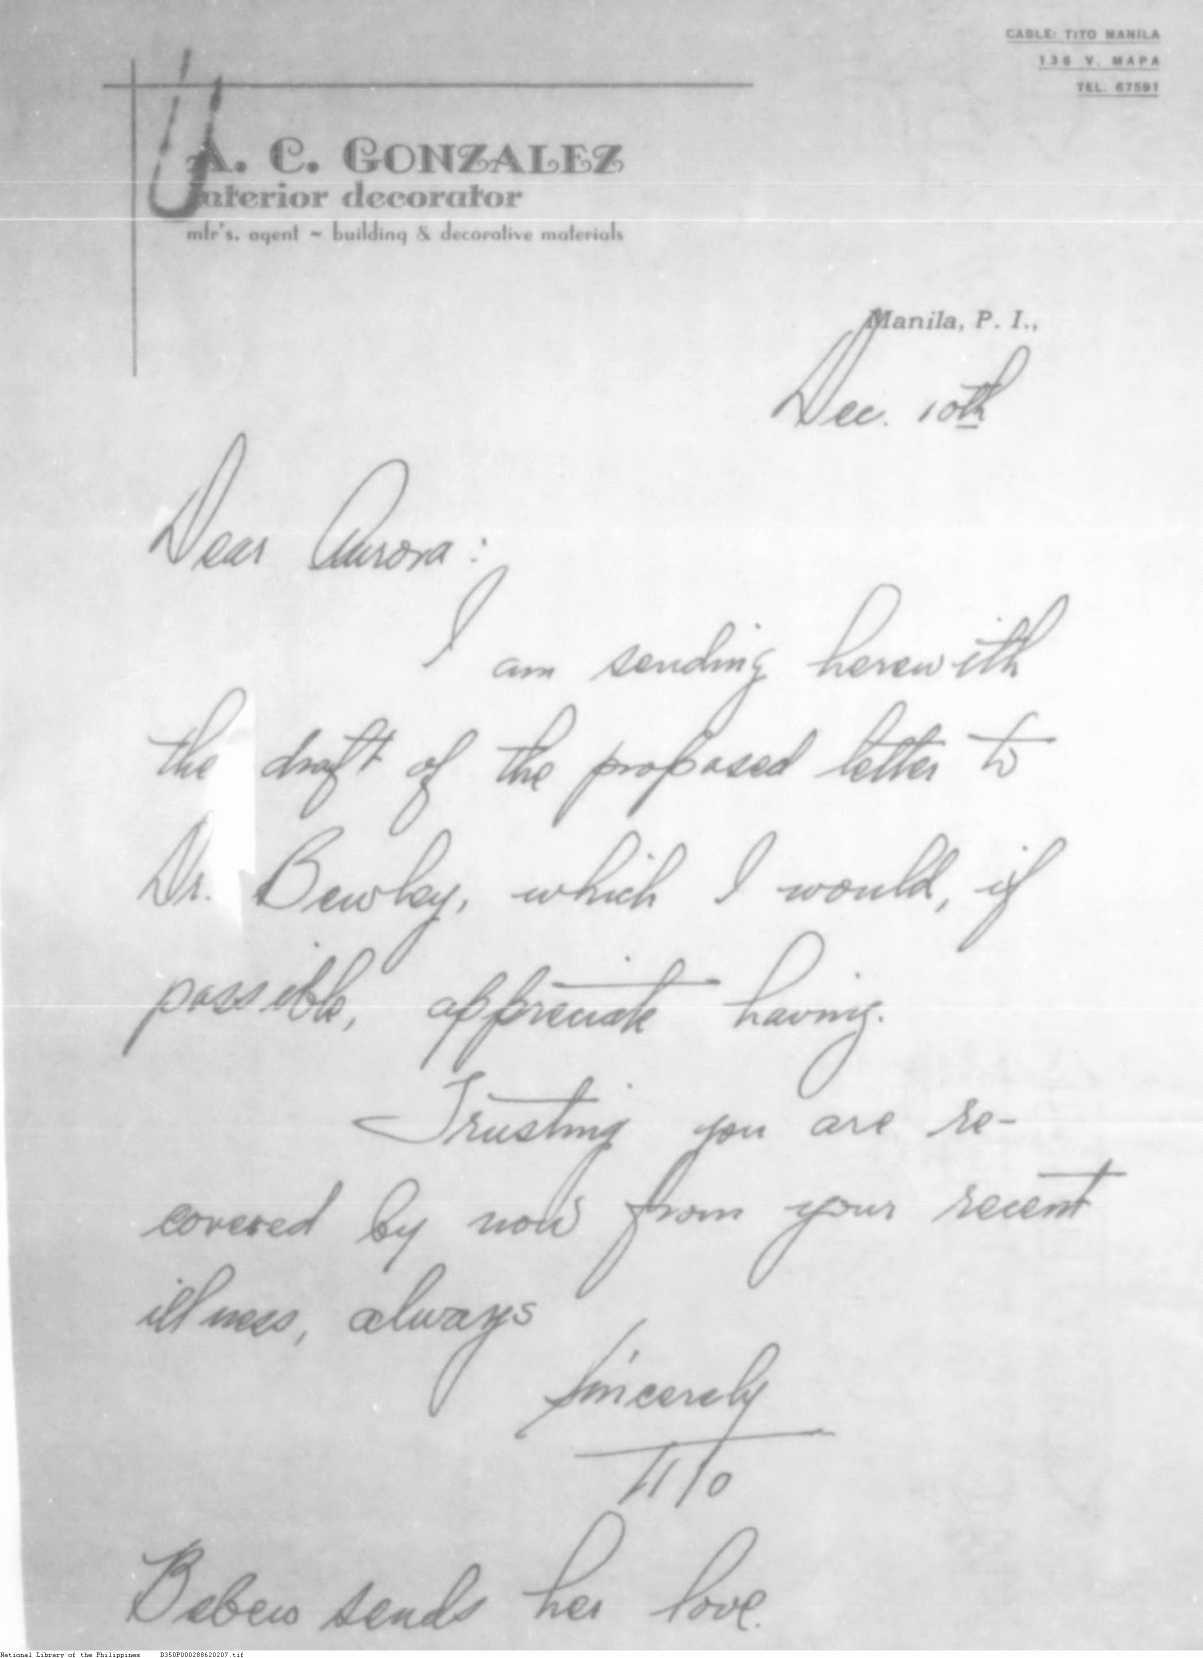 CABLE: TITO MANILA
136 V. MAPA
TEL. 67591
A. C. GONZALEZ
interior decorator
mfr's. agent ~ building & decorative materials
Manila, P. I.,
Dec. 10th
Dear Aurora:
I am sending herewith
the draft of the proposed letter to
Dr. Bewley, which I would, if
possible, appreciate having.
Trusting you are re-
covered by now from your recent
illness, always
Sincerely
Tito
sends her love.
National Library of the Philippines D350P000288620207.tif